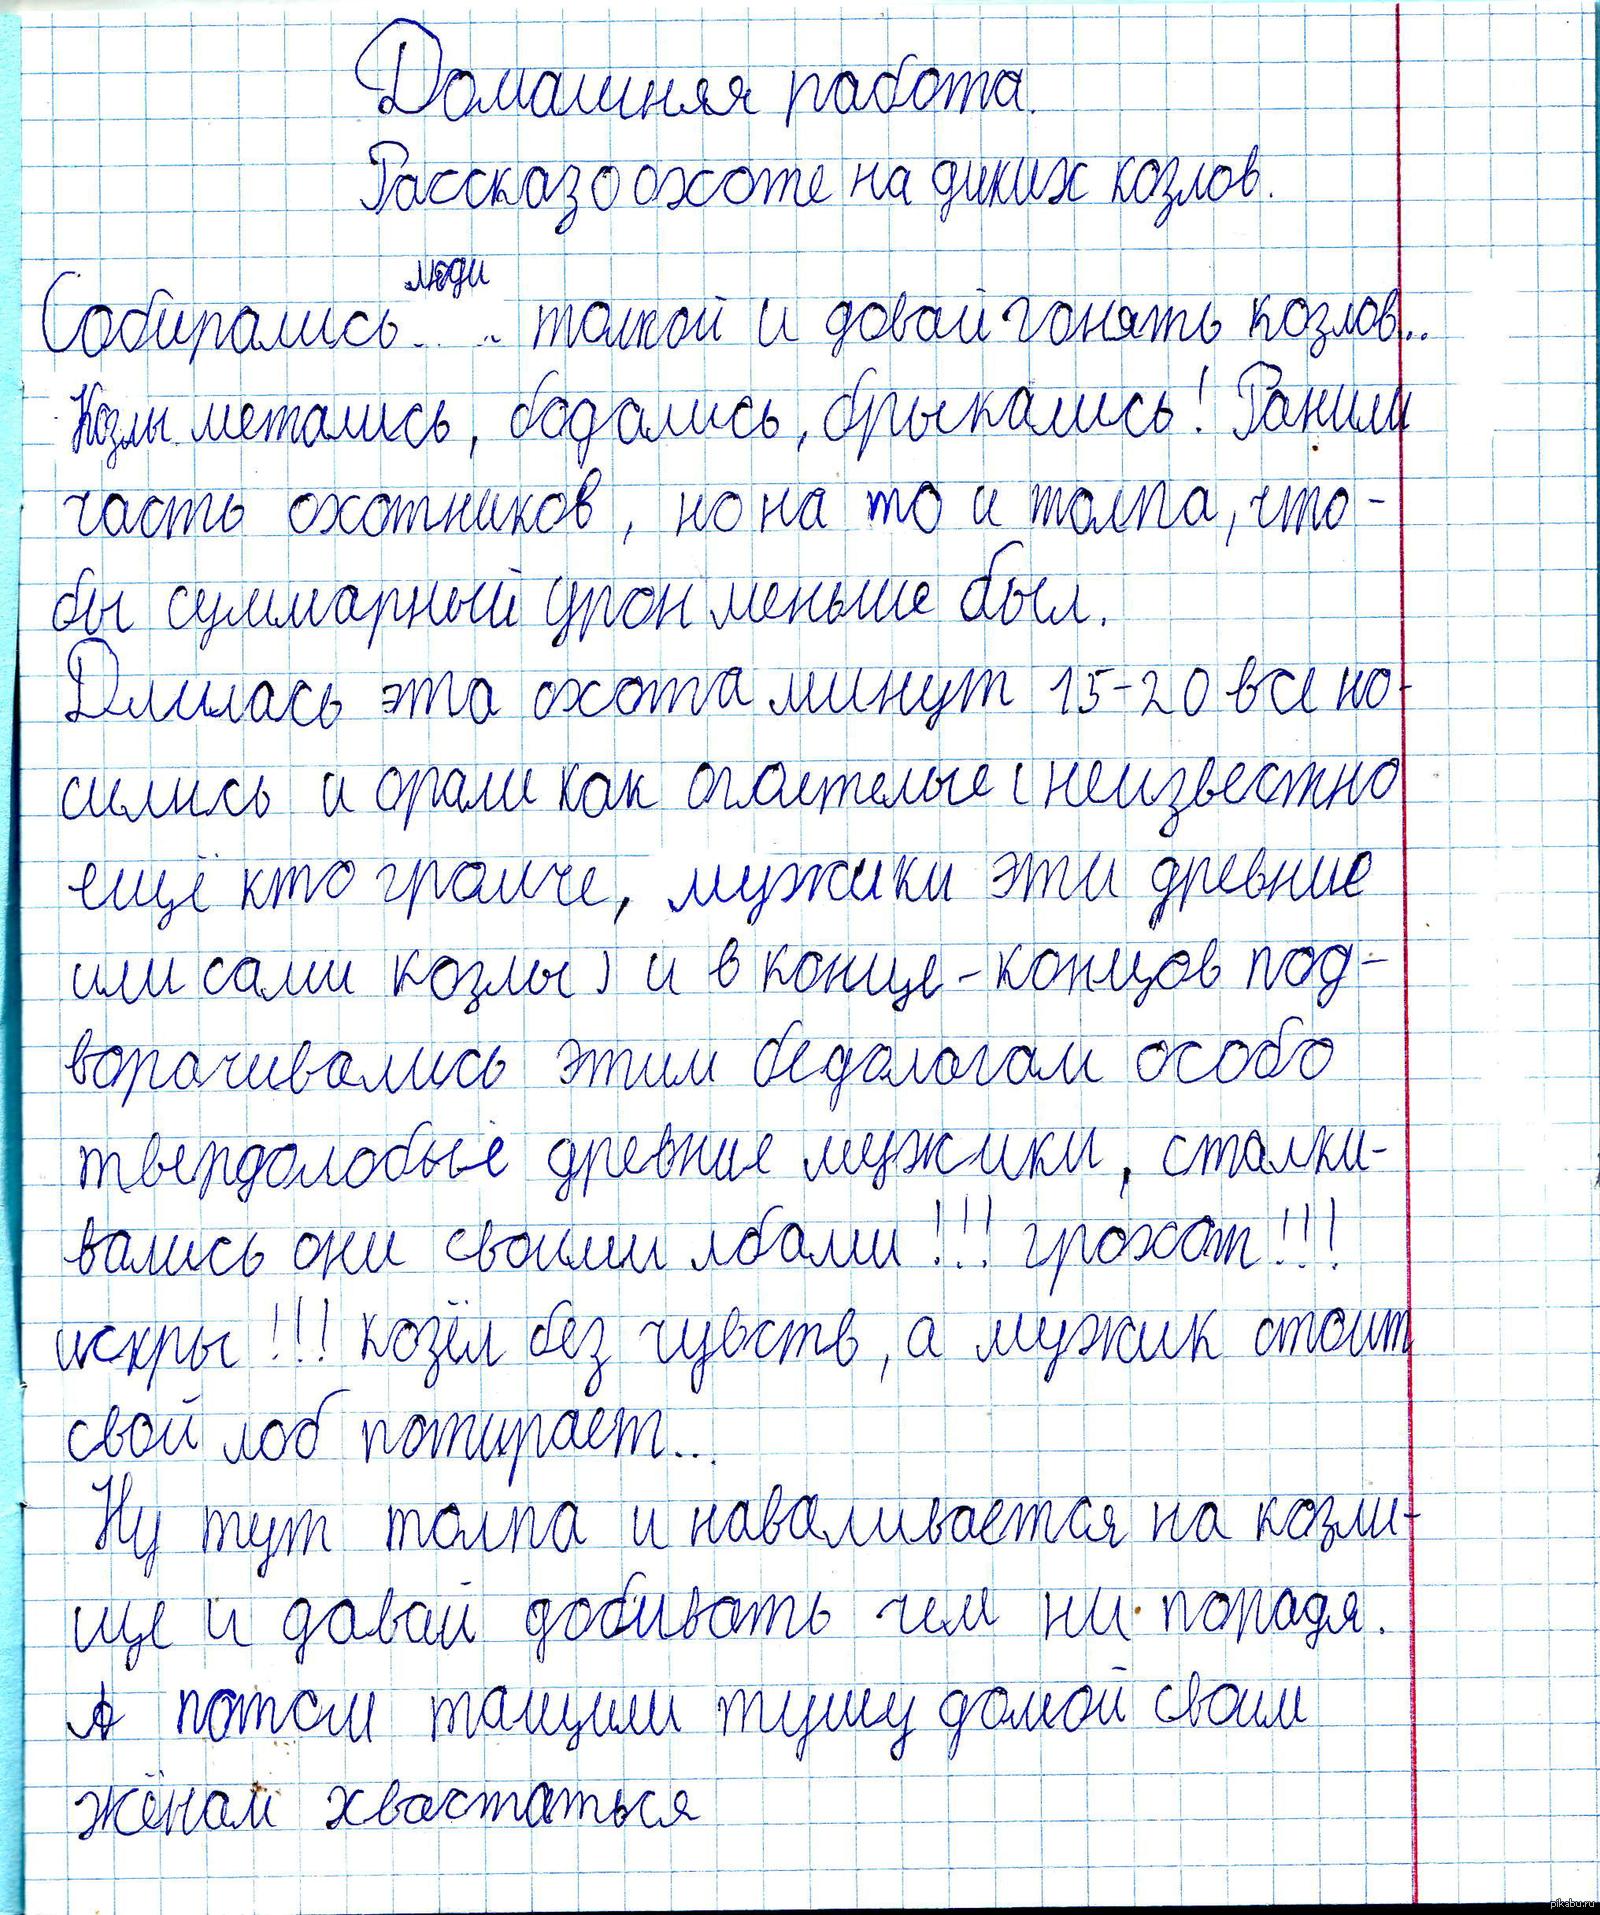 Домашняя работа.
Рассказ о охоте на диких козлов.
люди
Собирались.. .. толпой и давай гонять козлов..
Козлы метались, бодались, брыкались! Ранили
часть охотников, но на то и толпа, что-
бы суммарный урон меньше был.
Длилась эта охота минут 15-20 все но-
сились и орали как оглоетелые (неизвестно
ещё кто громче, мужики эти древние
или сами козлы) и в конце-концов под-
ворачивались этим бедолагам особо
твердолобые древние мужики, сталки-
вались они своими лбами!!! грохот!!!
искры!!! козёл без чувств, а мужик стоит
свой лоб потирает...
Ну тут толпа и наваливается на козли-
ще и давай добивать чем ни порадя.
А потом тащили тушу домой своим
жёнам хвастаться
pikabu.ru